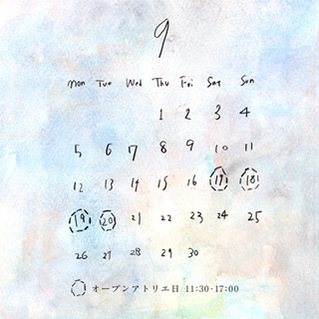 9
Mon Tue Wed Thu Fri Sat Sun
1 2 3 4
5 6 7 8 9 10 11
12 13 14 15 16 17 18
19 20 21 22 23 24 25
26 27 28 29 30
オープンアトリエ日 11:30-17:00